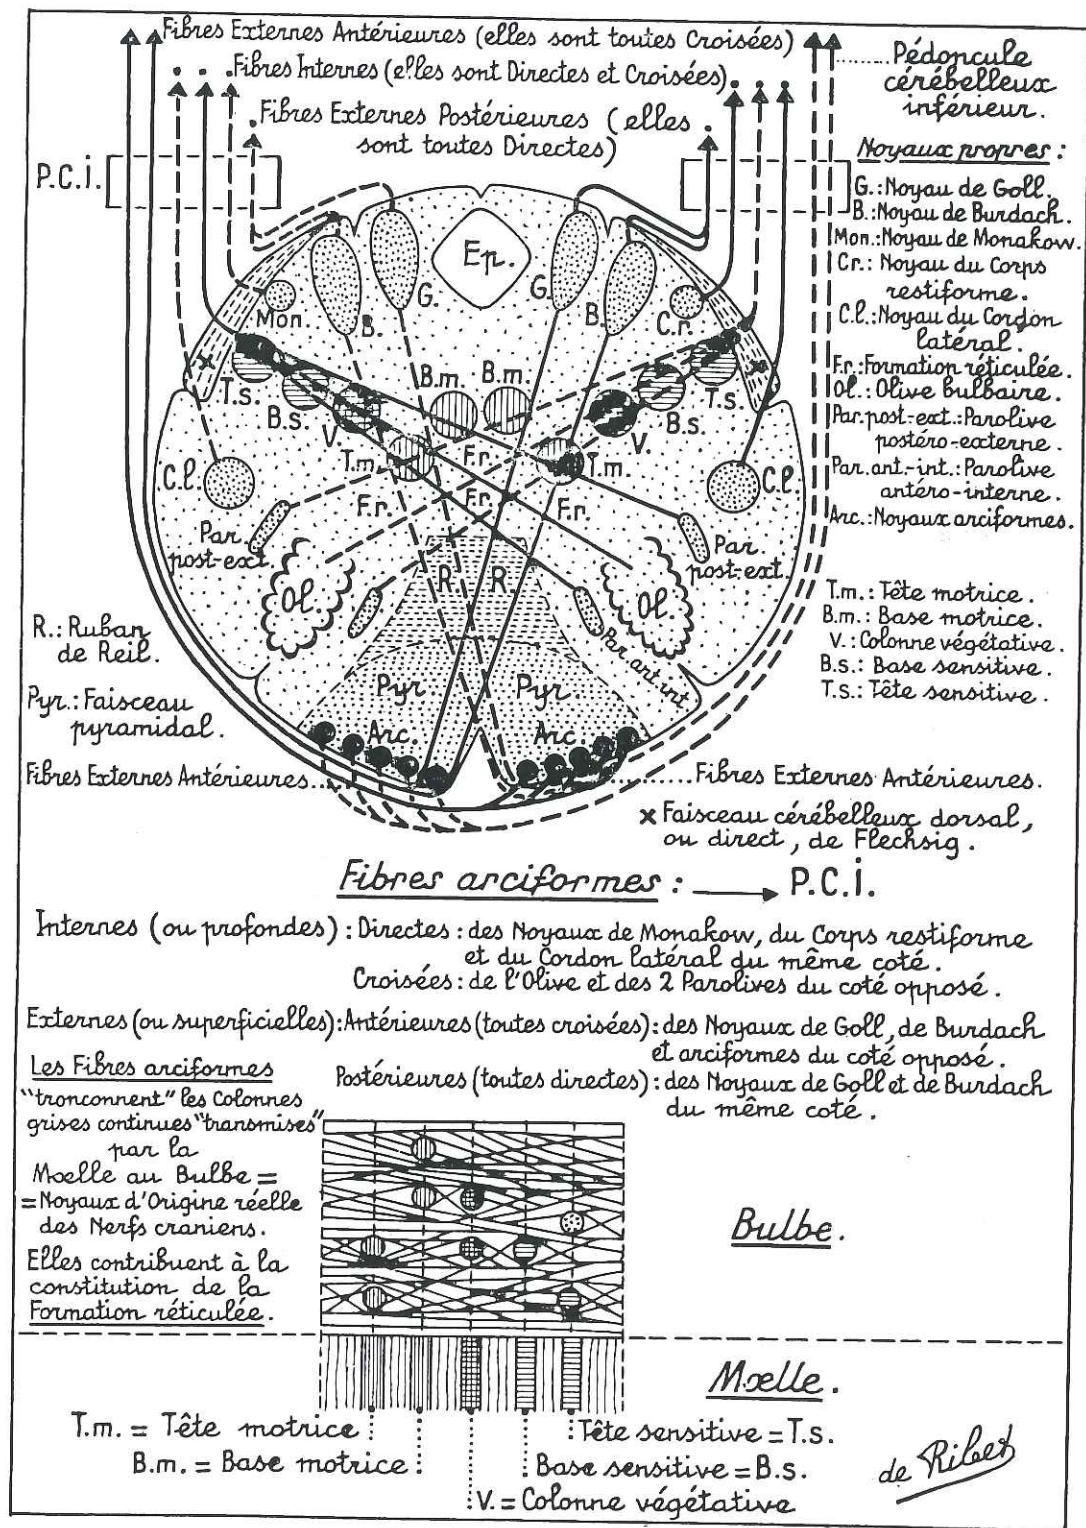 Fibres Externes Antérieures (elles sont toutes Croisées)
Fibres Internes (elles sont Directes et Croisées)
Fibres Externes Postérieures (elles
sont toutes Directes)
Pédoncule
cérébelleux
inférieur.
P.C.I.
Noyaux propres :
G.: Noyau de Goll.
B.: Noyau de Burdach.
Mon.: Noyau de Monakow.
Cr.: Noyau du Corps
restiforme.
C.l.: Noyau du Cordon
latéral.
F.r.: Formation réticulée.
Ol.: Olive bulbaire.
Par. post-ext.: Parolive
postéro-externe.
Par. ant.-int.: Parolive
antéro-interne.
Arc.: Noyaux arciformes.
T.m.: Tête motrice.
B.m.: Base motrice.
V.: Colonne végétative.
B.s.: Base sensitive.
T.s.: Tête sensitive.
Ep.
G.
G.
B.
B.
Mon.
Cr.
B.m.
B.m.
T.s.
B.s.
V.
T.m.
F.r.
T.m.
V
B.s.
T.s.
C.l.
F.r.
F.r.
F.r.
C.l.
Par.
post-ext.
Par.
post-ext.
Ol.
R
R
Ol.
Par. ant. int.
Pyr.
Pyr.
Arc.
Arc.
R.: Ruban
de Reil.
Pyr.: Faisceau
pyramidal.
Fibres Externes Antérieures...
......Fibres Externes Antérieures.
x Faisceau cérébelleux dorsal,
ou direct, de Flechsig.
Fibres arciformes : → P.C.I.
Internes (ou profondes) : Directes : des Noyaux de Monakow, du Corps restiforme
et du Cordon latéral du même coté.
Croisées : de l'Olive et des 2 Parolives du coté opposé.
Externes (ou superficielles) : Antérieures (toutes croisées) : des Noyaux de Goll, de Burdach
et arciformes du coté opposé.
Postérieures (toutes directes) : des Noyaux de Goll et de Burdach
du même coté.
Les Fibres arciformes
"tronconnent" les Colonnes
grises continues "transmises"
par la
Mœlle au Bulbe =
= Noyaux d'Origine réelle
des Nerfs craniens.
Elles contribuent à la
constitution de la
Formation réticulée.
Bulbe.
Mœlle.
T.m. = Tête motrice
B.m. = Base motrice
V. = Colonne végétative
Base sensitive = B.s.
Tête sensitive = T.s.
de Ribet